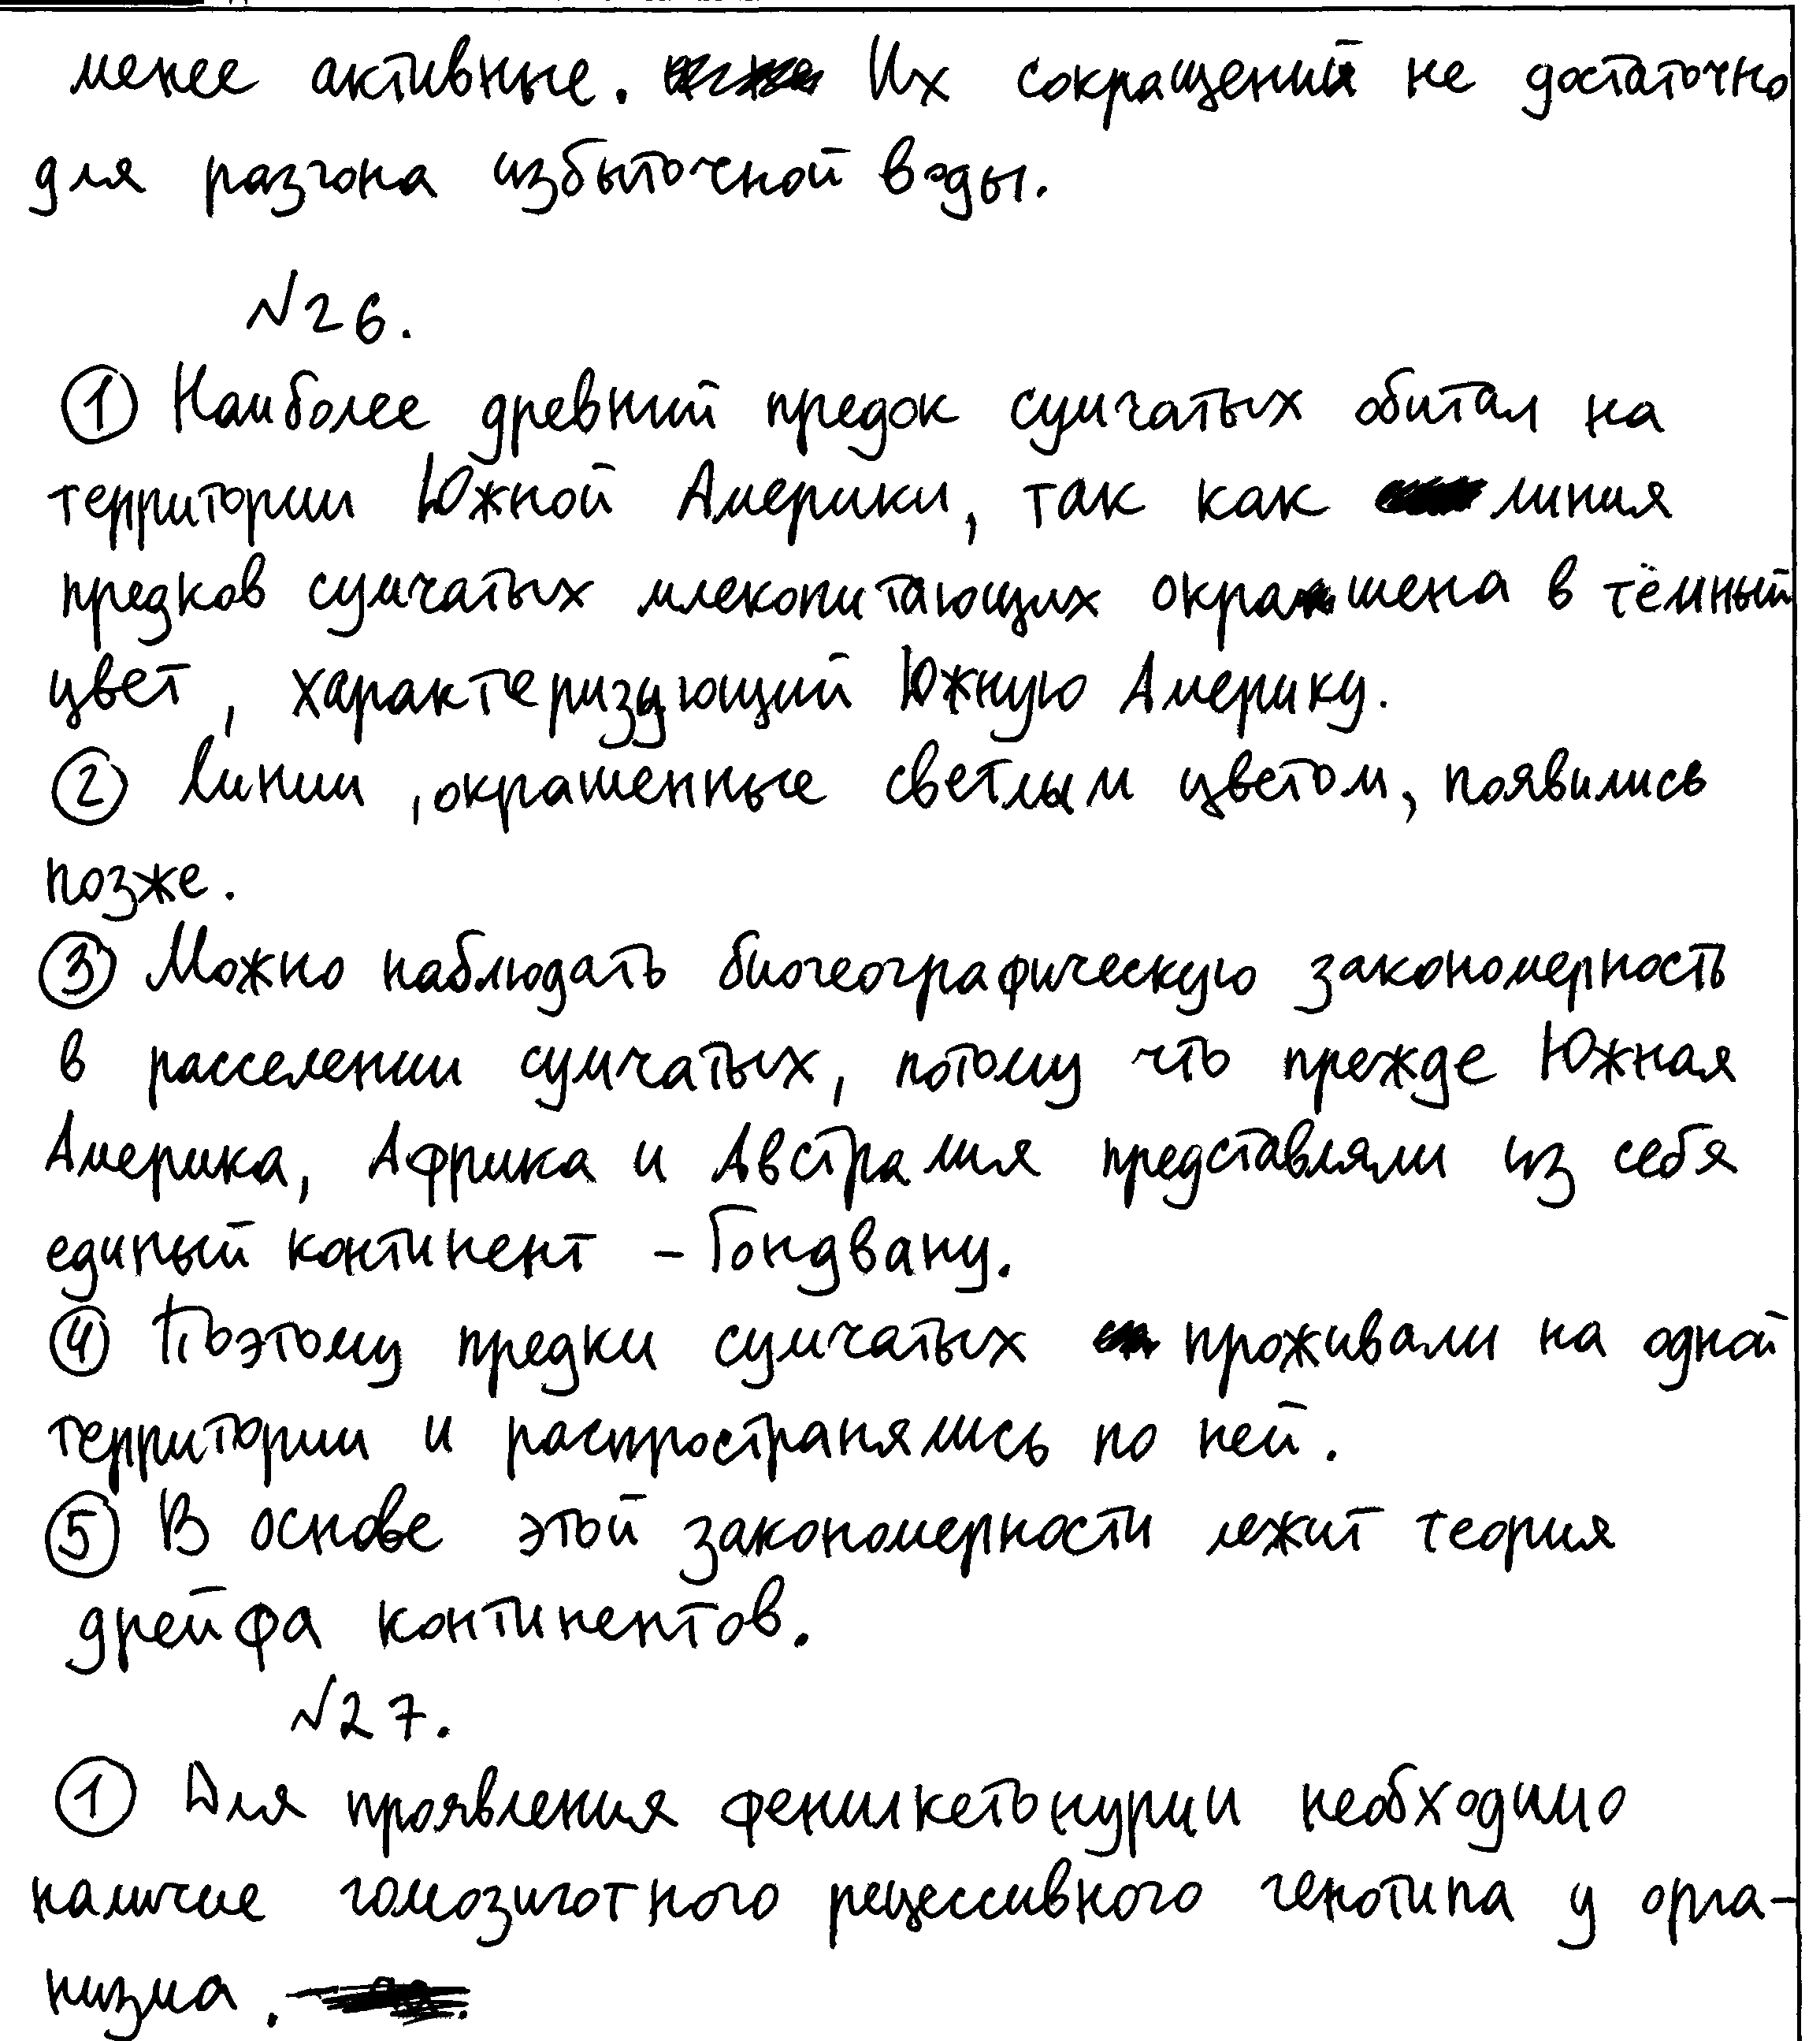 менее активные. Их сокращений не достаточно
для разгона избыточной воды.
№26.
① Наиболее древний предок сумчатых обитал на
территории Южной Америки, так как линия
предков сумчатых млекопитающих окрашена в тёмный
цвет, характеризующий Южную Америку.
② Линии, окрашенные светлым цветом, появились
позже.
③ Можно наблюдать биогеографическую закономерность
в расселении сумчатых, потому что прежде Южная
Америка, Африка и Австралия представляли из себя
единый континент - Гондвану.
④ Поэтому предки сумчатых проживали на одной
территории и распространялись по ней.
⑤ В основе этой закономерности лежит теория
дрейфа континентов.
№27.
① Для проявления фенилкетонурии необходимо
наличие гомозиготного рецессивного генотипа у орга-
низма.